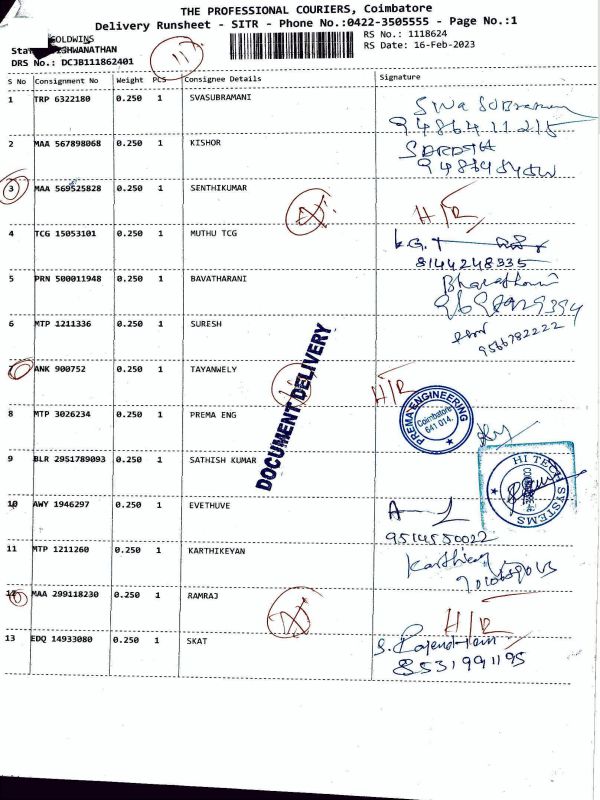 THE PROFESSIONAL COURIERS, Coimbatore
Delivery Runsheet - SITR - Phone No.:0422-3505555 - Page No.:1
GOLDWINS
RS No.: 1118624
RS Date: 16-Feb-2023
DRS No.: DCJB111862401
S No Consignment No Weight PCS Consignee Details Signature
1 TRP 6322180 0.250 1 SVASUBRAMANI
9486411215
2 MAA 567898068 0.250 1 KISHOR
3 MAA 569525828 0.250 1 SENTHIKUMAR H/R
4 TCG 15053101 0.250 1 MUTHU TCG
8144248335
5 PRN 500011948 0.250 1 BAVATHARANI
6 MTP 1211336 0.250 1 SURESH
9566782222
7 ANK 900752 0.250 1 TAYANWELY H/R
DOCUMENT DELIVERY
8 MTP 3026234 0.250 1 PREMA ENG
PREMA ENGINEERING
Coimbatore
641 014.
9 BLR 2951789093 0.250 1 SATHISH KUMAR
HI TECH SYSTEMS
10 AWY 1946297 0.250 1 EVETHUVE
9514550022
11 MTP 1211260 0.250 1 KARTHIKEYAN
12 MAA 299118230 0.250 1 RAMRAJ H/R
13 EDQ 14933080 0.250 1 SKAT
8531991195